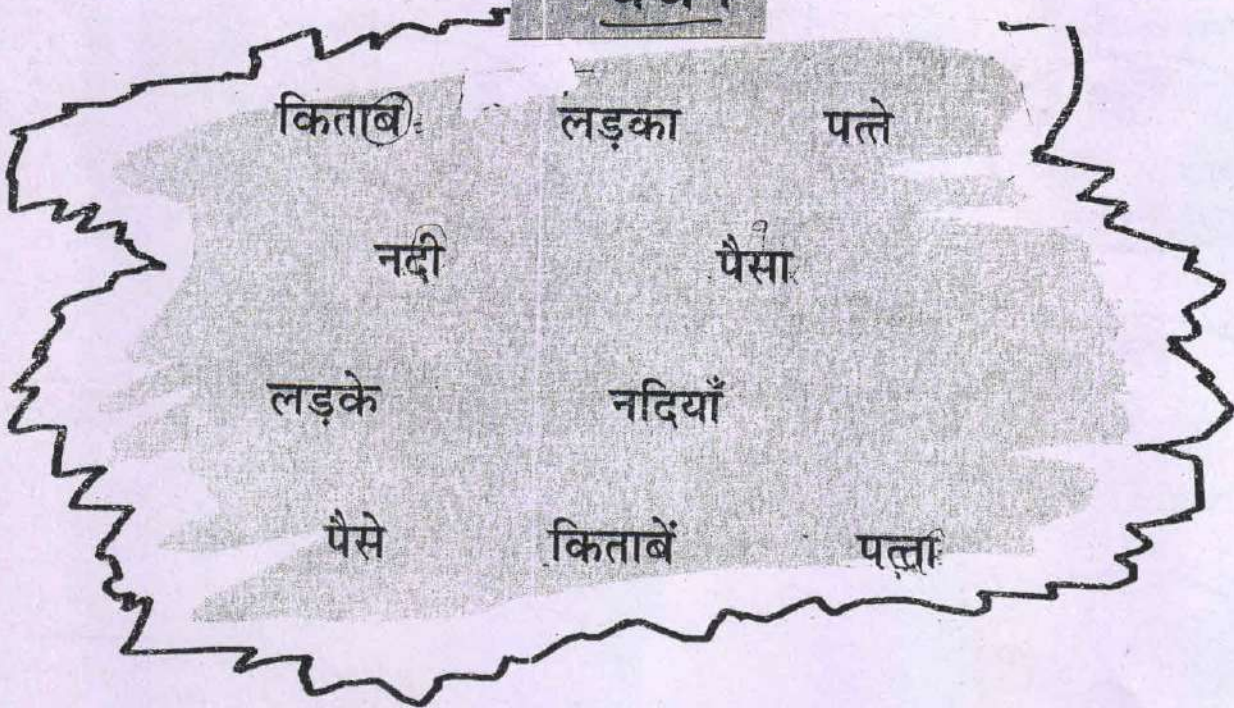 किताब लड़का पत्ते
नदी पैसा
लड़के नदियाँ
पैसे किताबें पत्ता